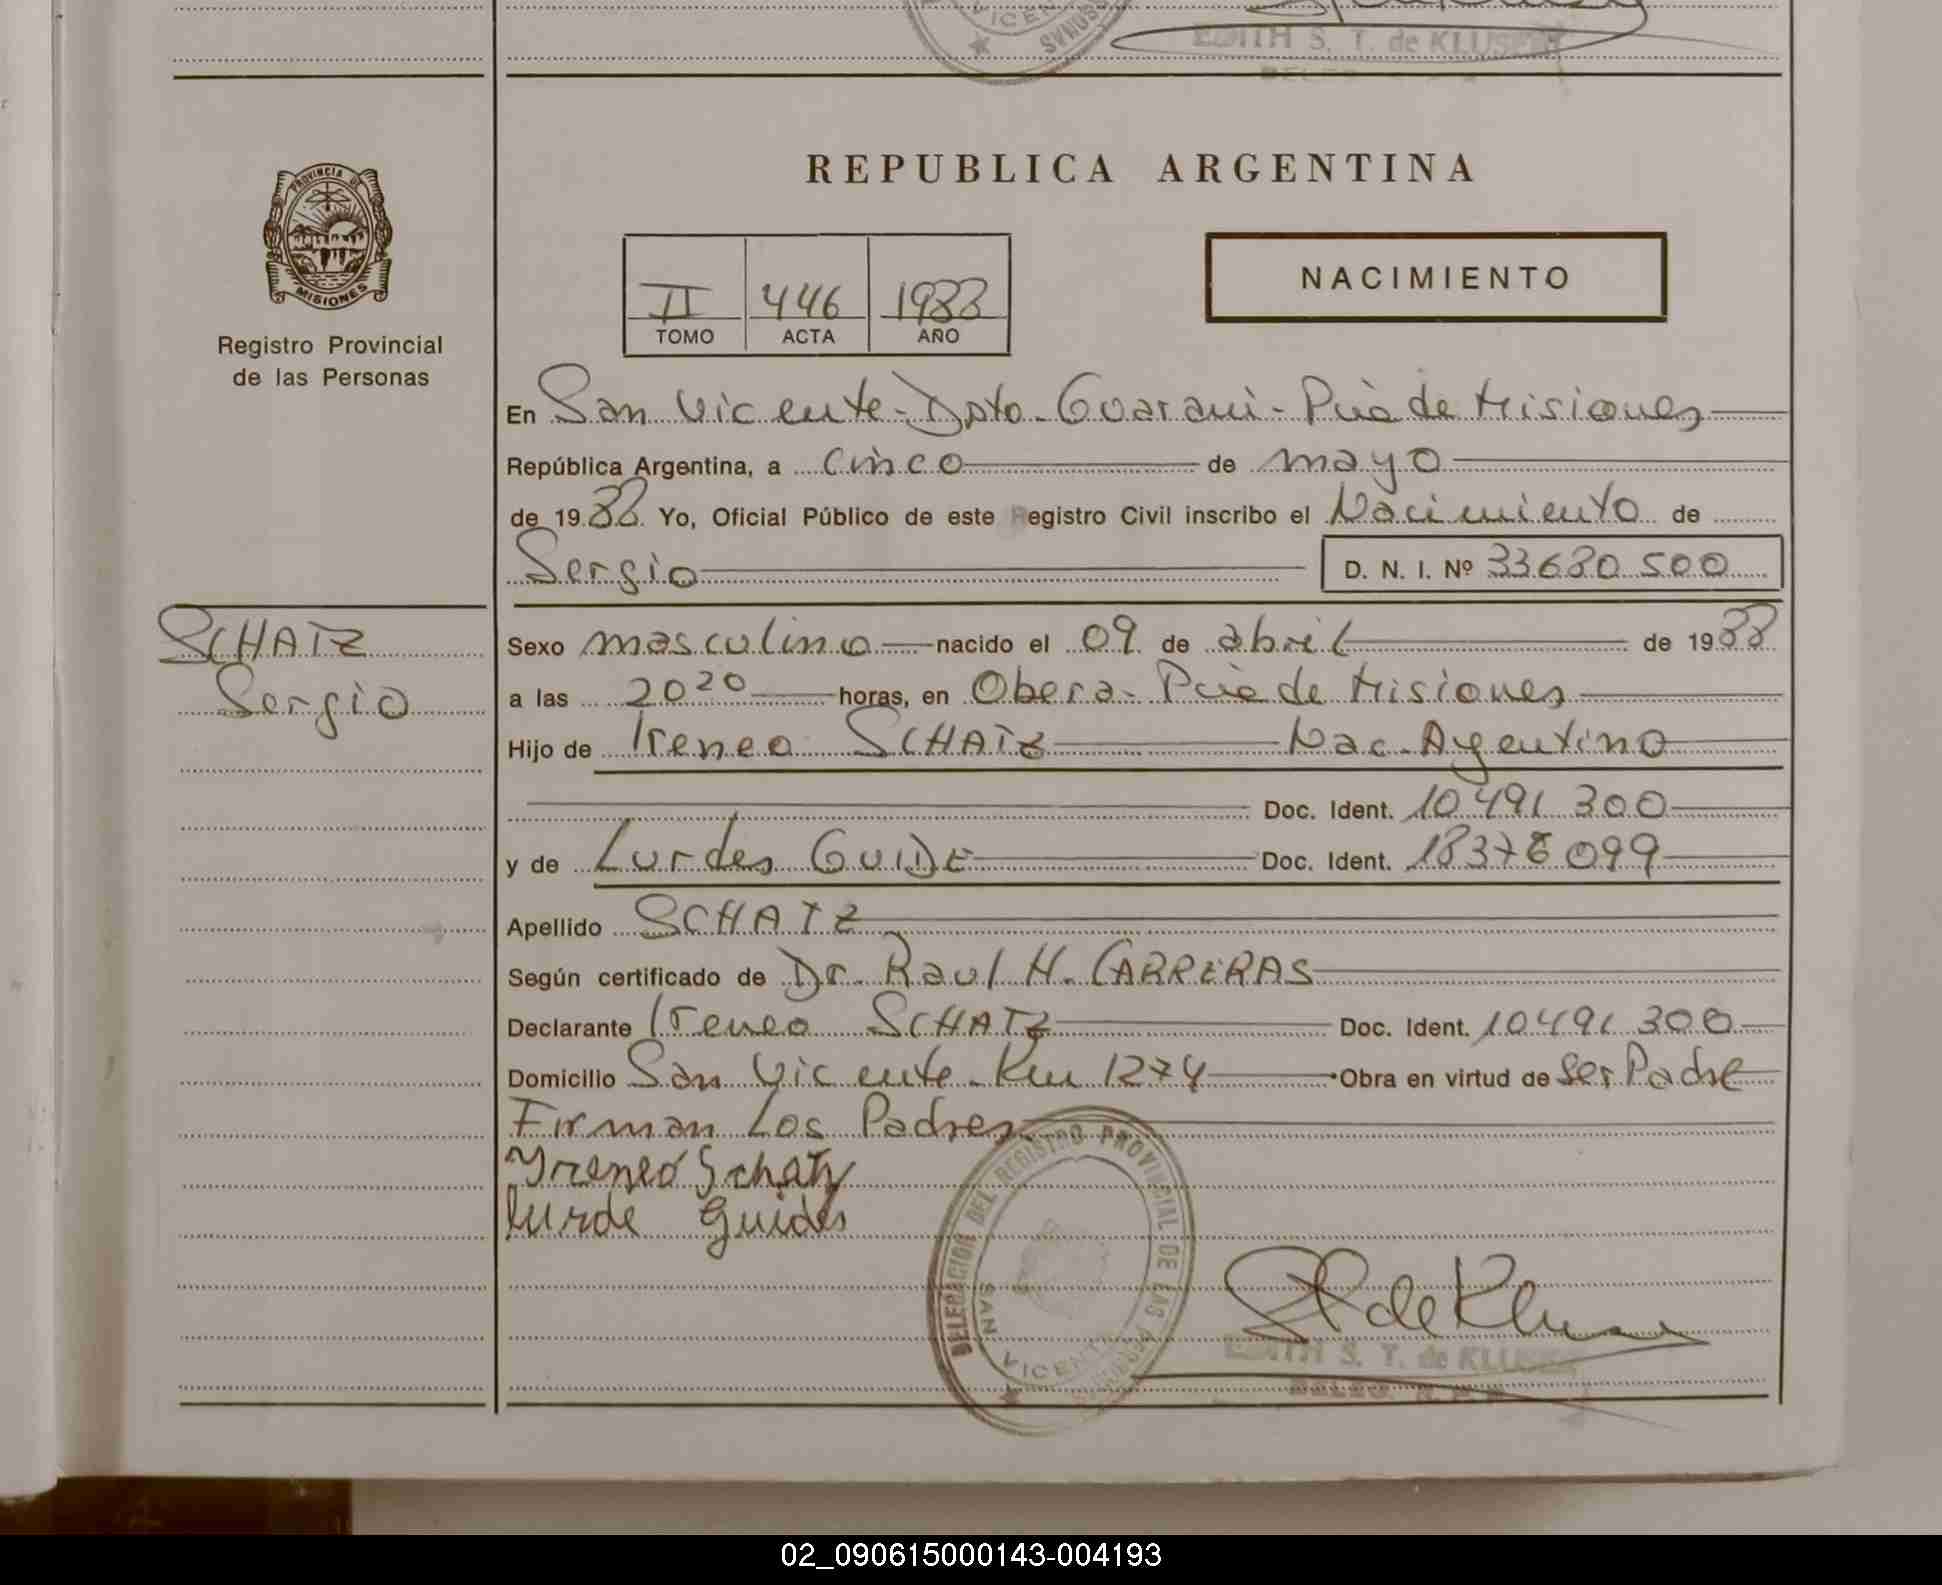 VICENTE
PERSONAS
EDITH S. T. de KLUSENER
REPUBLICA ARGENTINA
PROVINCIA DE
MISIONES
Registro Provincial
de las Personas
II 446 1988
TOMO ACTA AÑO
NACIMIENTO
En San Vicente-Dpto-Guarani-Pcia de Misiones
República Argentina, a cinco de mayo
de 1988. Yo, Oficial Público de este Registro Civil inscribo el Nacimiento de
Sergio D. N. I. Nº 33.680.500
SCHATZ
Sergio
Sexo masculino nacido el 09 de abril de 1988
a las 20 20 horas, en Obera-Pcia de Misiones
Hijo de Ireneo SCHATZ Nac-Argentino
Doc. Ident. 10.491.300
y de Lurdes GUIDE Doc. Ident. 18378099
Apellido SCHATZ
Según certificado de Dr. Raul H. CARRERAS
Declarante Ireneo SCHATZ Doc. Ident. 10.491.300
Domicilio San Vicente-Km 1274 Obra en virtud de ser Padre
Firman Los Padres
Yreneo Schatz
lurde Guides
DELEGACION DEL REGISTRO PROVINCIAL DE LAS PERSONAS
SAN VICENTE
EDITH S. T. de KLUSENER
02_090615000143-004193